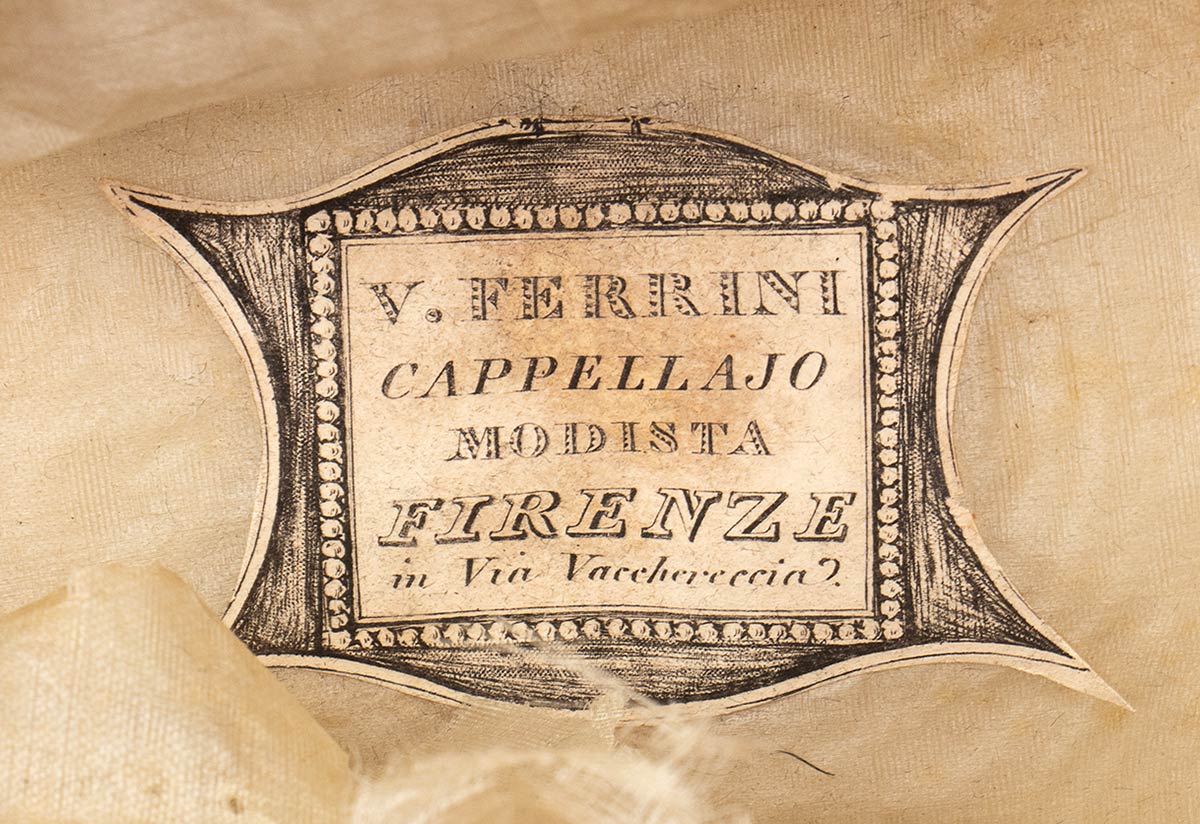 V. FERRINI
CAPPELLAJO
MODISTA
FIRENZE
in Via Vacchereccia.